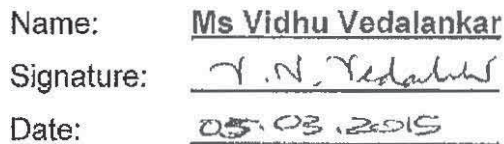 Name: Ms Vidhu Vedalankar
Signature: V.N. Vedalankar
Date: 05.03.2015